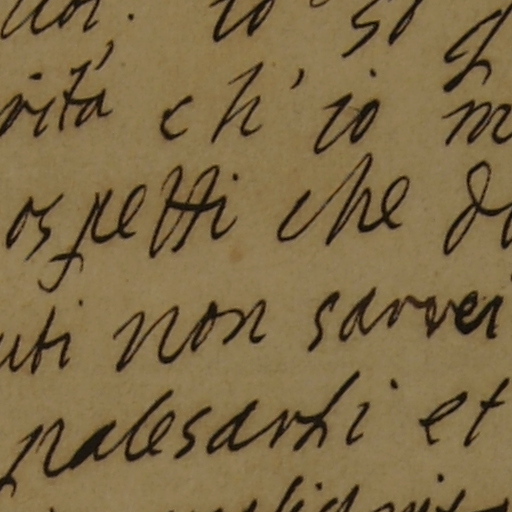 voi. Io so
rità ch' io m
ospetti che do
uti non sarrei
palesarli et